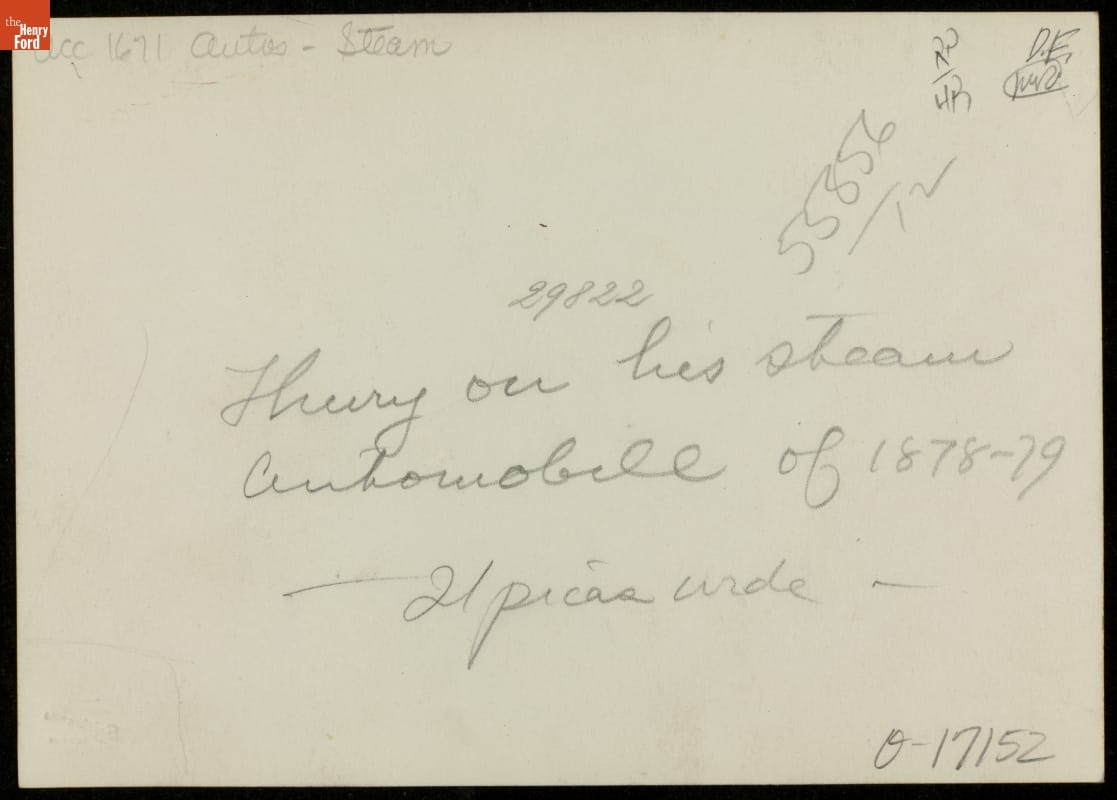 the
Henry
Ford
Acc 1671 Autos - Steam
RP
HR
D.E.
55856
/12
29822
Thury on his steam
Automobile of 1878-79
— 21 picas wide —
O-17152